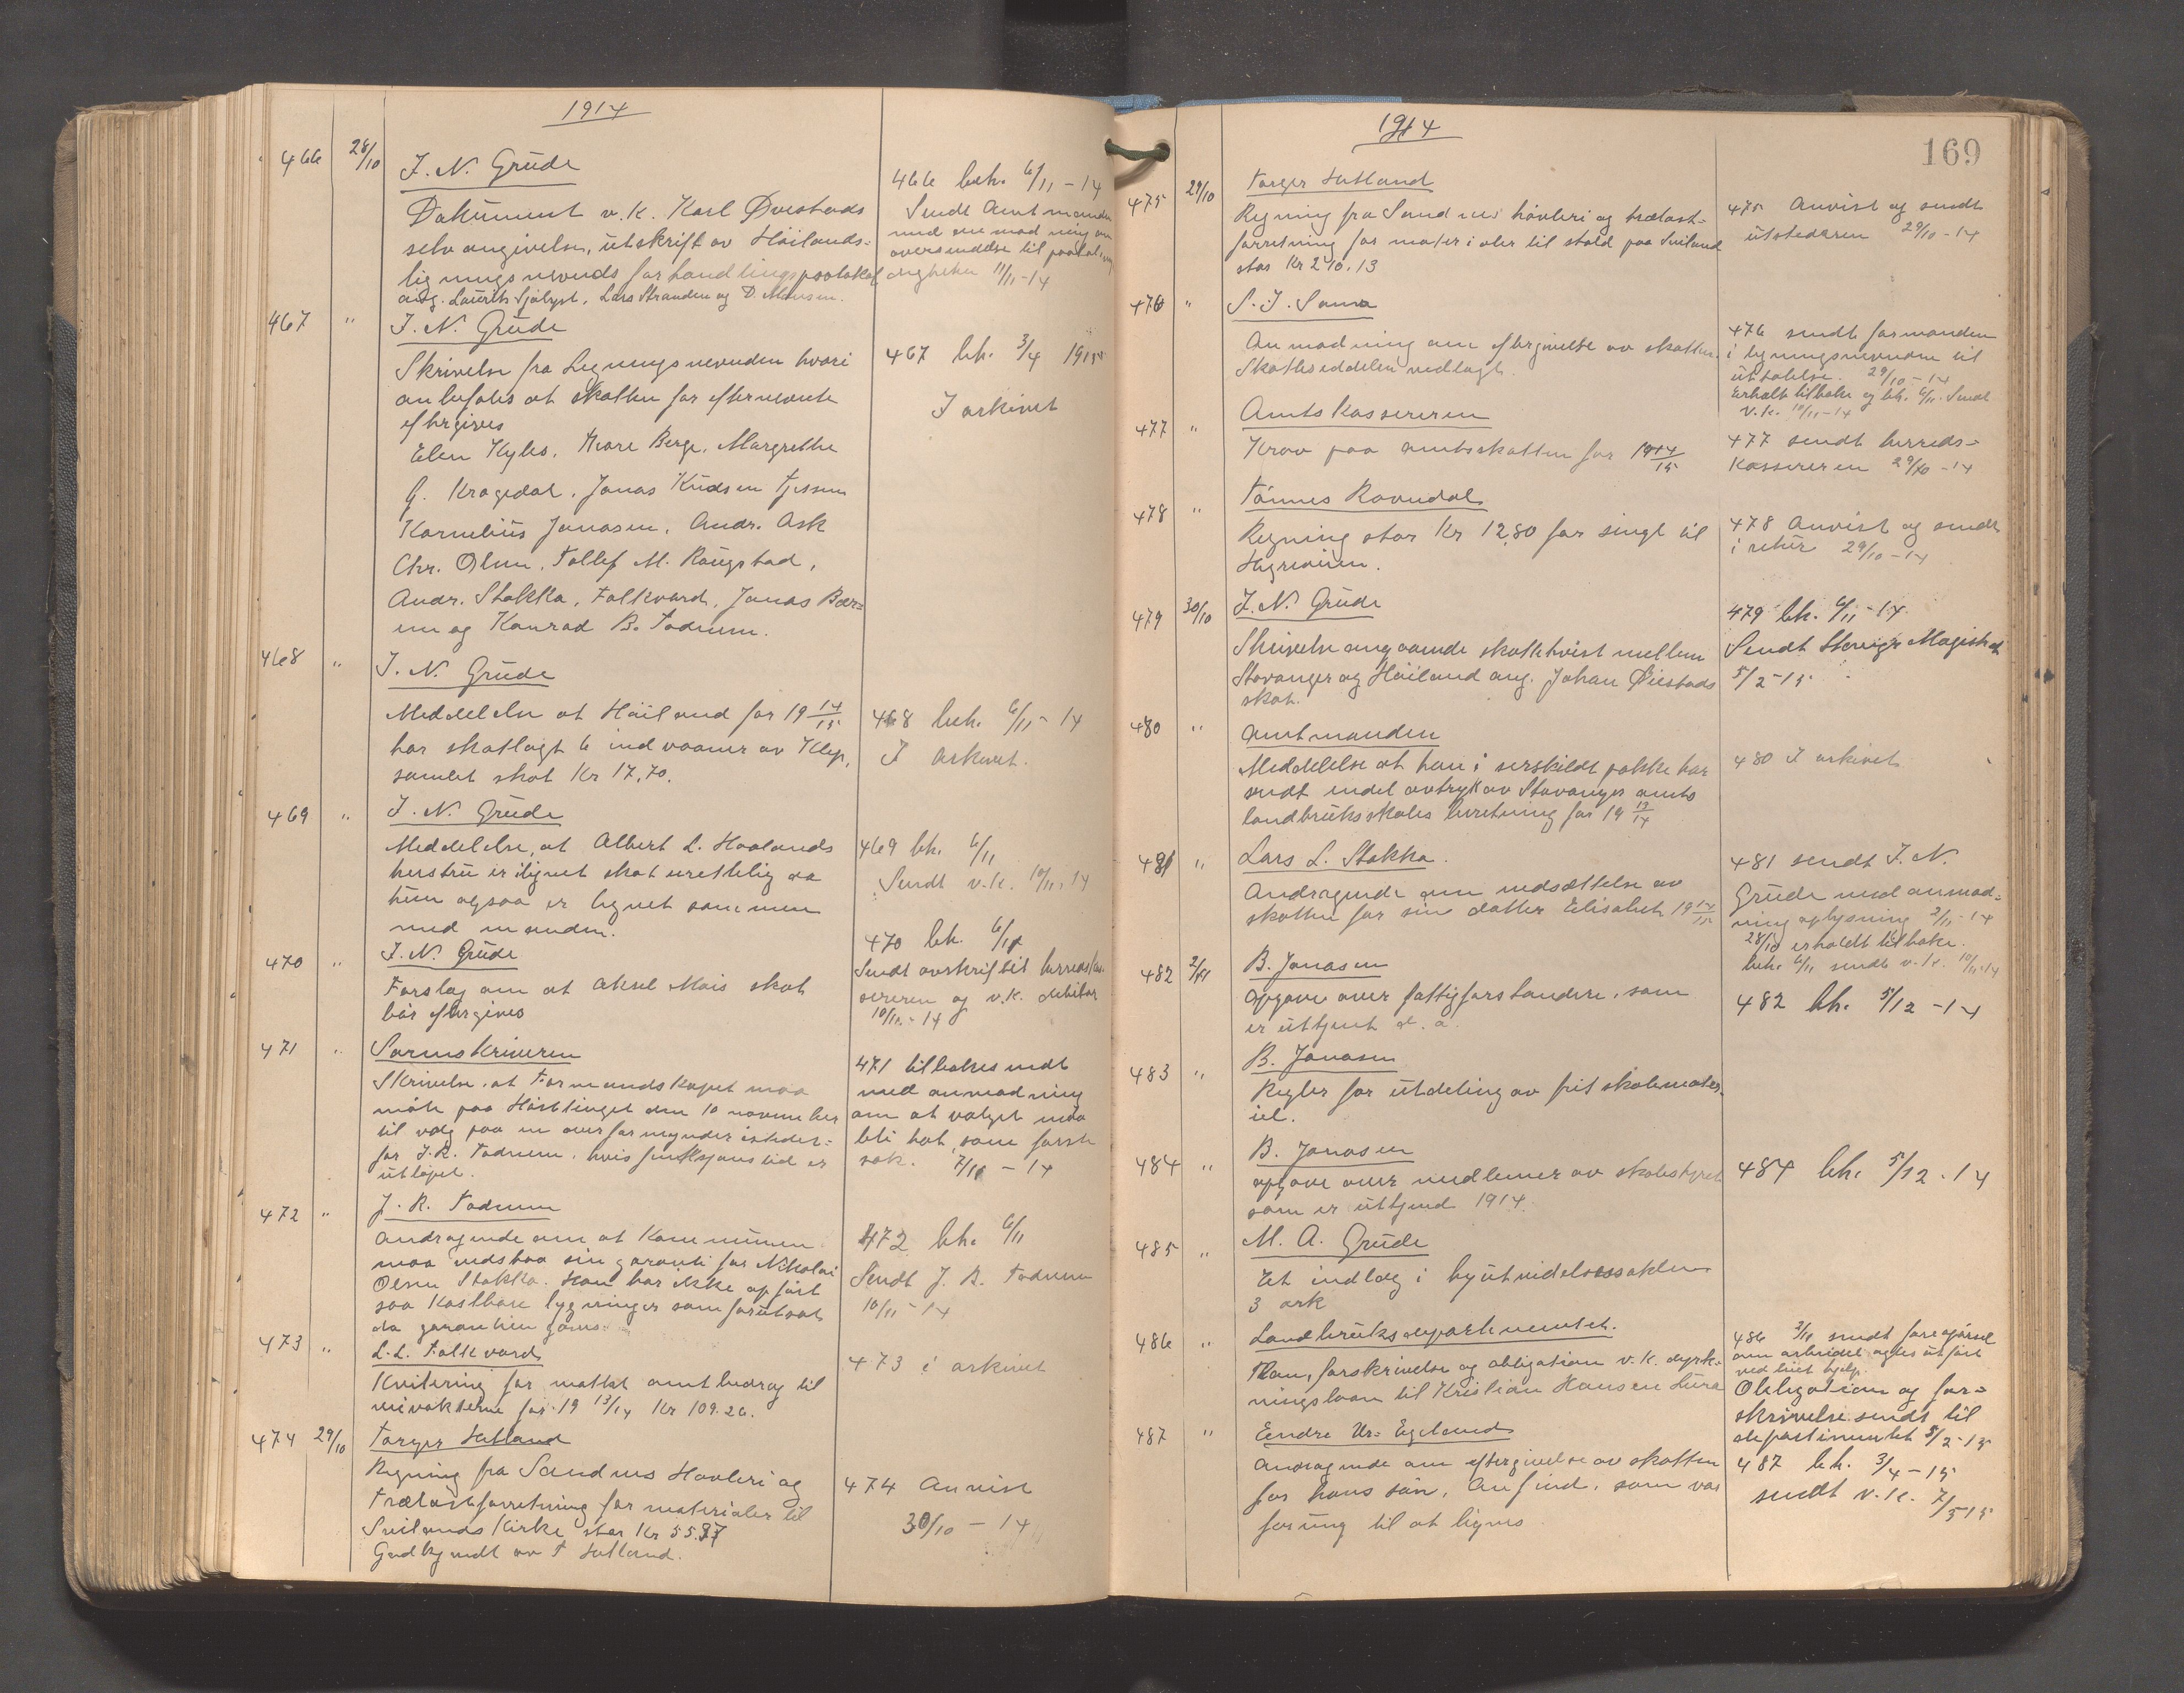 1914
466 28/10 J. N. Grude
Dokument v.k. Karl Øvestads
selvangivelse, utskrift av Höilands=
ligningsnevnds forhandlingsprotokol
ang. Laurits Sjölyst, Lars Stranden og D. Monsen.
466 beh. 6/11 - 14
Sendt Amtmanden
med anmodning om
oversendelse til
11/11 - 14
467 " J. N. Grude
Skrivelse fra Ligningsnevnden hvori
anbefales at skatten for efternevnte
eftergives
Elen Kyles, Berge, Margrethe
G. Kragedal, Jonas Kndsen Tjessem
Kornelius Jonasen, Andr. Ask
Chr. Olsen, Tollef M. Raugstad,
Andr. Stokka, Falkvard, Jonas Bær=
em og Konrad B. Todnem.
467 beh. 3/4 1915
I arkivet
468 " J. N. Grude
Meddelelse at Höiland for 19 14/15
har skatlagt 6 indvaaner av Klep,
samlet skat Kr 17,70.
468 beh. 6/11 - 14
I arkivet.
469 " J. N. Grude
Meddelelse, at Albert L. Haalands
hustru er ilignet skat urettelig da
hun ogsaa er lignet sammen
med manden.
469 beh. 6/11
Sendt v.k. 10/11-14
470 " J. N. Grude
Forslag om at Aksel Mois skat
bör eftergives
470 beh. 6/11
Sendt avskrift til herredskas-
sereren og v.k. debitor
10/11 - 14
471 " Sorenskriveren
Skrivelse at Formandskapet maa
möte paa Hösttinget den 10 november
til valg paa en overformynder istedet=
for J. R. Todnem, hvis funksjonstid er
utlöpet.
471 tilbakesendt
med anmodning
om at valget maa
bli hat som første
sak. 7/11 - 14
472 " J. R. Todnem
Andragende om at Kommunen
maa vedstaa sin garanti for Nikolai
Olsen Stokka. Han har ikke opfört
saa kostbare bygninger som forutsat
da garantien gaves.
472 beh. 6/11
Sendt J. R. Todnem
10/11 - 14
473 " L. L. Falkvard
Kvitering for mottat amtbidrag til
veivokterne for 19 13/14 Kr 109.26.
473 i arkivet
474 29/10 Torger Hetland
Regning fra Sandnes Hövleri og
Trælastforretning for materialer til
Soilands Kirke, stor Kr 55.97
Godkjendt av T Hetland.
474 Anvist
30/10 - 14
1914
169
475 29/10 Torger Hetland
Regning fra Sandnes hövleri og trælast=
forretning for materialer til stald paa Soiland
stor Kr 210.13
475 Anvist og sendt
utstederen 29/10 - 14
476 " S. J. Soma
Anmodning om eftergivelse av skatten.
Skatteseddelen vedlagt.
476 sendt formanden
i ligningsnevnden til
uttalelse. 29/10 - 14
Erholdt tilbake og beh. 6/11. Sendt
v.k. 10/11 - 14
477 " Amtskassereren
Krav paa amtsskatten for 1914/15
477 sendt herreds=
kassereren 29/10 - 14
478 " Tönnes Ravndal
Regning stor Kr 12.80 for singl til
Hegreveien.
478 Anvist og sendt
i retur 29/10 - 14
479 30/10 J. N. Grude
Skrivelse angaaende skattetvist mellem
Stavanger og Höiland ang. Johan Øiestads
skat.
479 beh. 6/11 - 14
Sendt Stavngr Magistrat
5/2 - 15
480 " Amtmanden
Meddelelse at han i serskildt pakke har
sendt endel avtryk av Stavanger amts
landbruksskoles beretning for 19 13/14
480 I arkivet
481 " Lars L. Stokka.
Andragende om nedsættelse av
skatten for sin datter Elisabet 19 14/15
481 sendt J. N.
Grude med anmod=
ning oplysning 2/11 - 14
28/10 erholdt tilbake.
beh. 6/11 sendt v.k. 10/11-14
482 2/11 B. Jonasen
Opgave over fattigforstandere, som
er uttjent d. a.
482 bh. 5/12 - 14
483 " B. Jonasen
Regler for utdeling av frit skolemater-
iel.
484 " B. Jonasen
opgave over medlemer av skolestyret
som er uttjend 1914.
484 bh. 5/12 . 14
485 " M. A. Grude
Et indlæg i byutvidelsessaken
3 ark
486 " Landbruksdepartementet.
Plan, forskrivelse og obligation v.k. dyrk=
ningslaan til Kristian Hansen Lura
486 3/11 sendt forespörsel
om arbeidet agtes utfört
ved leiet hjelp.
Obligation og for=
skrivelse sendt til
departementet 5/2 - 15
487 " Eendre Ur= Egeland
Andragende om eftergivelse av skatten
for hans sön, Anfind, som var
for ung til at lignes
487 beh. 3/4 - 15
sendt v.k. 7/5 15